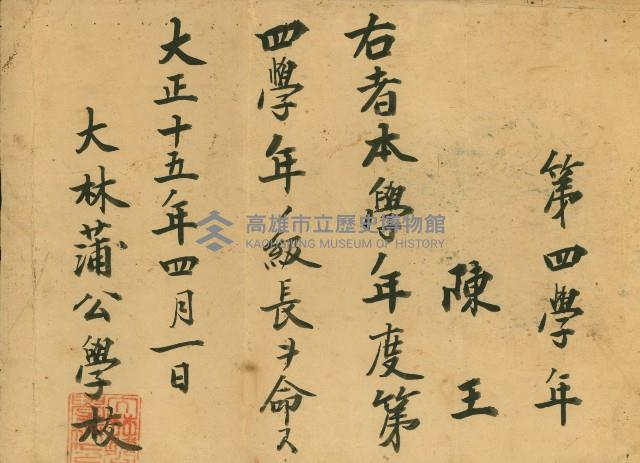 第四學年
陳王
右者本學年度第
四學年ノ級長ヲ命ス
大正十五年四月一日
大林蒲公學校
高雄市立歷史博物館
KAOHSIUNG MUSEUM OF HISTORY